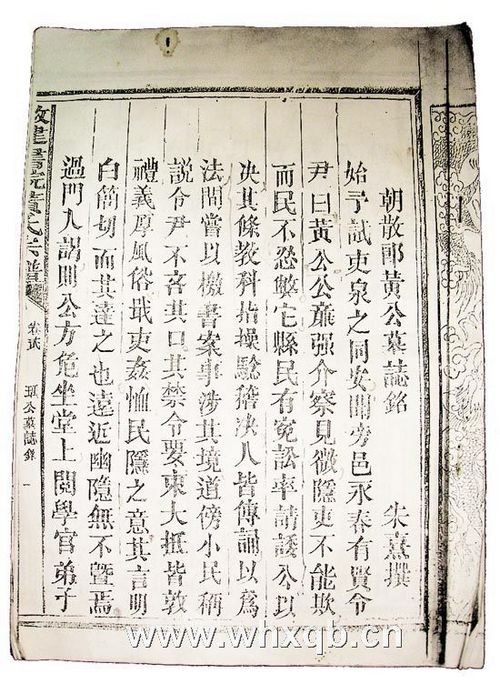 朝散郎黃公墓誌銘 朱熹撰
始予試吏泉之同安聞旁邑永春有賢令
尹曰黃公公廉强介察見微隱吏不能欺
而民不忍敏它縣民有寃訟率請誘公以
决其條教科指操驗稽决人皆傳誦以爲
法間嘗以檄書案事涉其境道傍小民稱
說令尹不吝其口其禁令要束大抵皆敦
禮義厚風俗戢吏姦恤民隱之意其言明
白簡切而其達之也遠近幽隱無不曁焉
過門入謁則公方危坐堂上閱學官弟子
書院黃氏宗譜
公墓誌銘 一
www.whxqb.cn